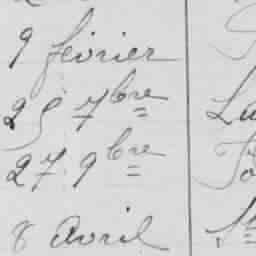 9 février
25 7bre
27 9bre
8 avril